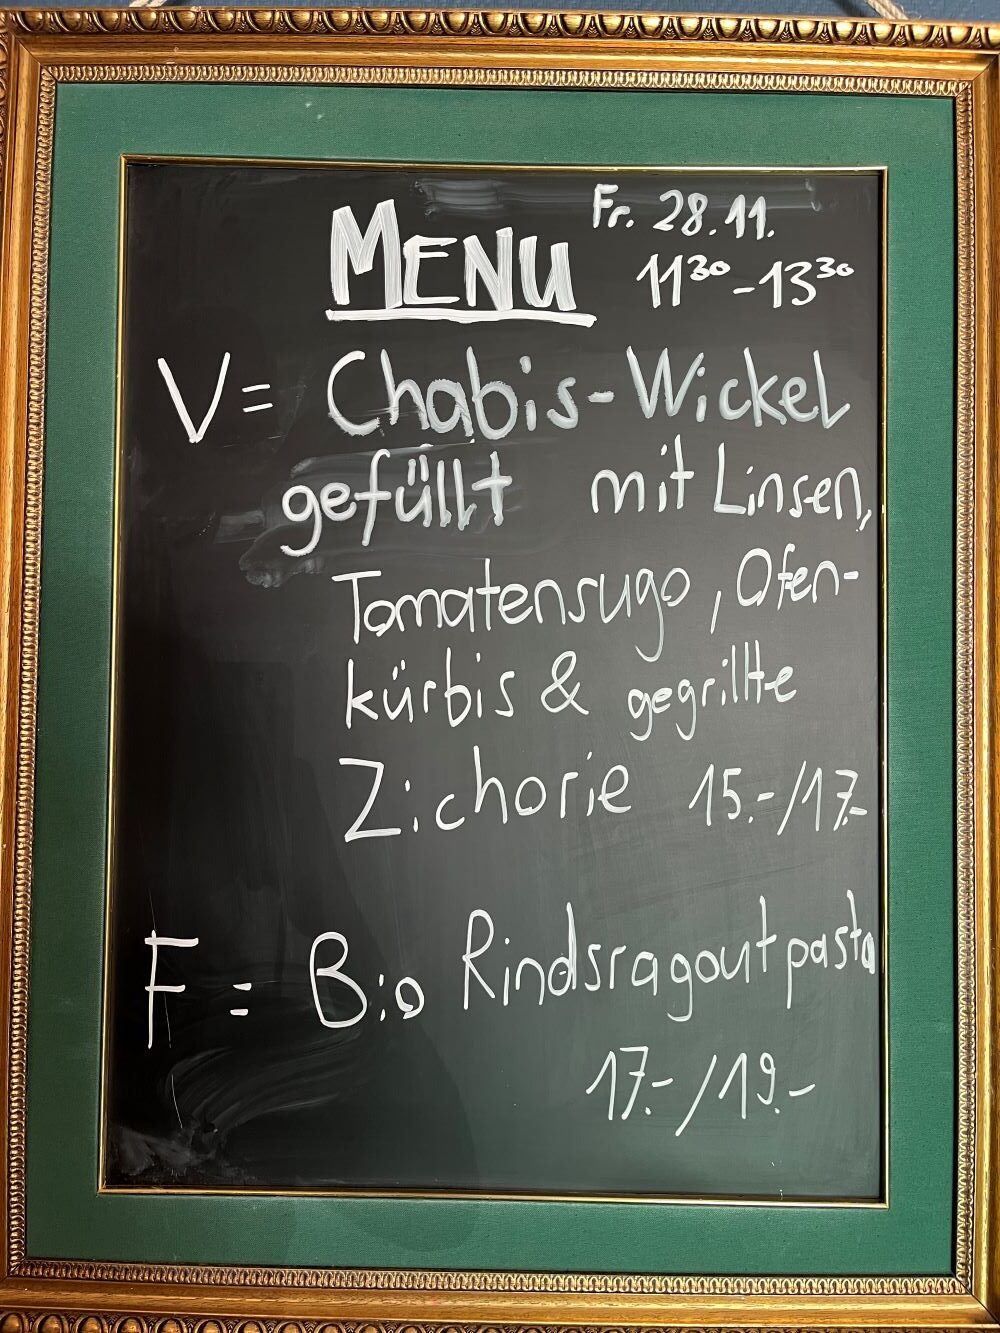 MENU
Fr. 28.11.
11³⁰-13³⁰
V= Chabis-Wickel
gefüllt mit Linsen,
Tomatensugo, Ofen-
kürbis & gegrillte
Zichorie 15.-/17.-
F= Bio Rindsragout pasta
17.-/19.-